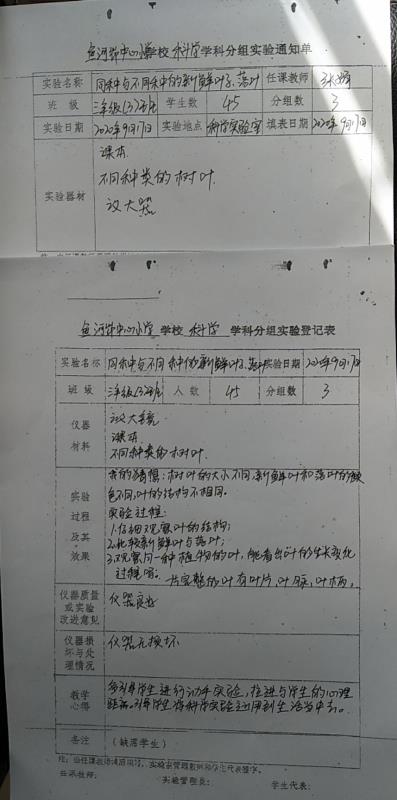 鱼河峁中心小学校 科学学科分组实验通知单
实验名称 同种与不同种的新鲜叶子、落叶 任课教师
班 级 三年级(3)班 学生数 45 分组数 3
实验日期 2020年9月17日 实验地点 科学实验室 填表日期 2020年9月17日
实验器材
课本
不同种类的树叶
放大器
鱼河峁中心小学 学校 科学 学科分组实验登记表
实验名称 同种与不同种的新鲜叶子、落叶 实验日期 2020年9月17日
班 级 三年级(3)班 人 数 45 分组数 3
仪器
材料
放大镜
课本
不同种类的树叶
实验
过程
及其
效果
我的猜想:树叶的大小不同,新鲜叶和落叶的颜
色不同,叶的结构不相同。
实验过程:
1.仔细观察叶的结构;
2.比较新鲜叶与落叶;
3.观察同一种植物的叶,能看出叶的生长变化
过程吗。 一片完整的叶有叶片,叶脉,叶柄。
仪器质量
或实验
改进意见
仪器良好
仪器损
坏与处
理情况
仪器无损坏
教学
心得
多引导学生进行动手实验,拉进与学生的心理
距离。引导学生将科学实验运用到生活当中去。
备注 (缺席学生)
注:由任课教师课后填写,实验室管理教师和学生代表签字。
任课教师: 实验管理员: 学生代表: